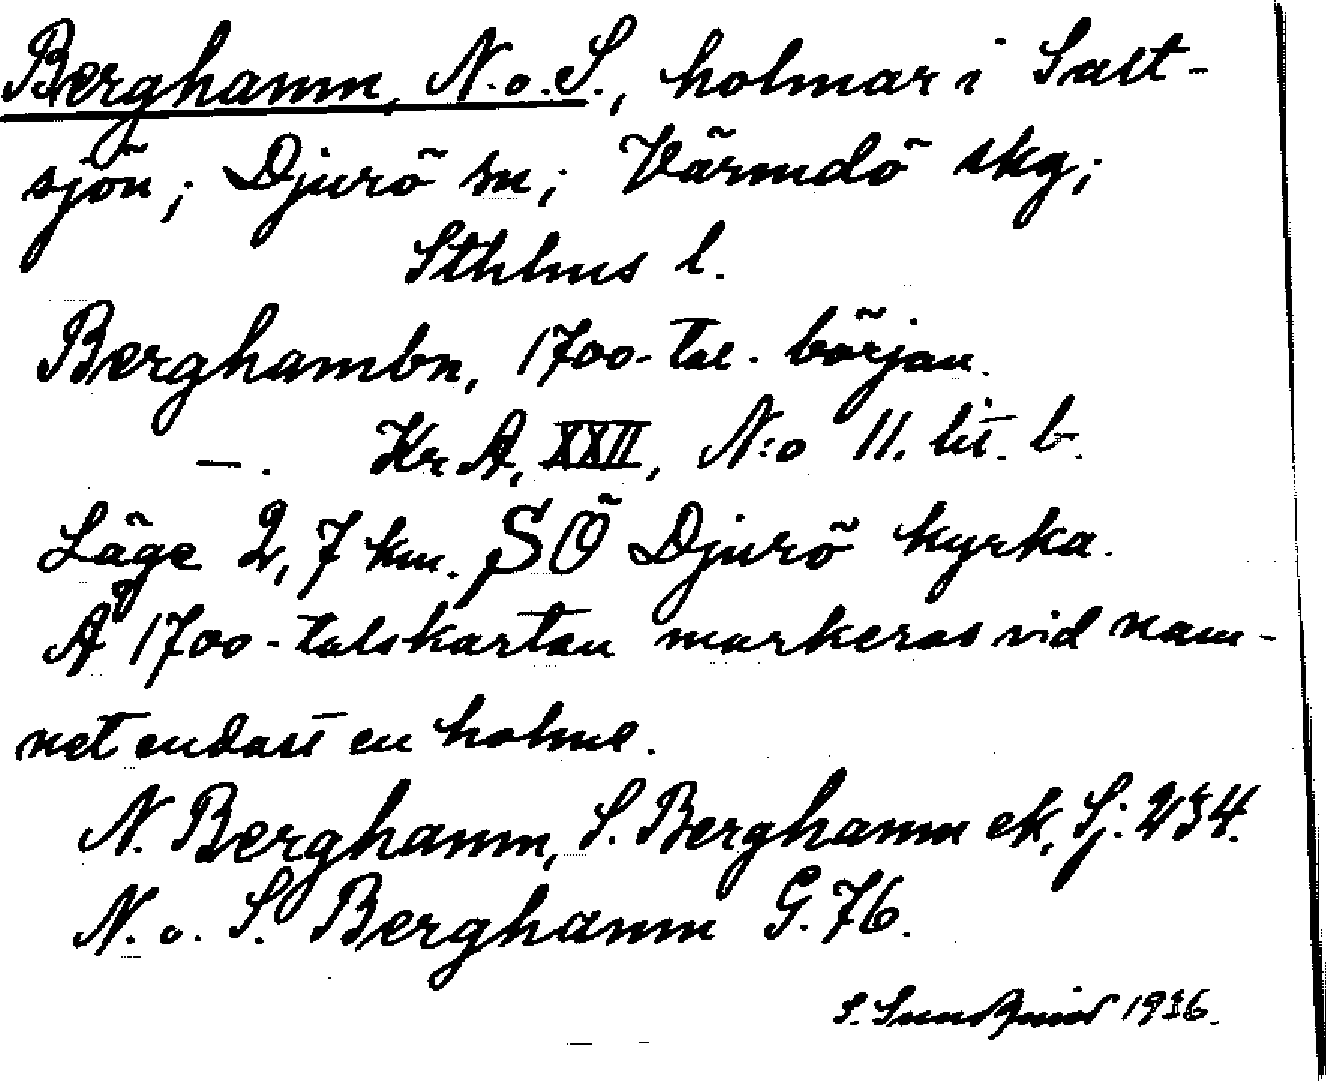 Berghamn, N. o. S., holmar i Salt-
sjön; Djurö sn; Värmdö skg;
Sthlms l.
Berghambn, 1700-tal. början.
—. Kr A, XXII, N:o 11. lit. b.
Läge 2,7 km. SÖ Djurö kyrka.
Å 1700-talskartan markeras vid nam-
net endast en holme.
N. Berghamn, S. Berghamn ek, Sj: 234.
N. o. S. Berghamn G. 76.
S. 1936.